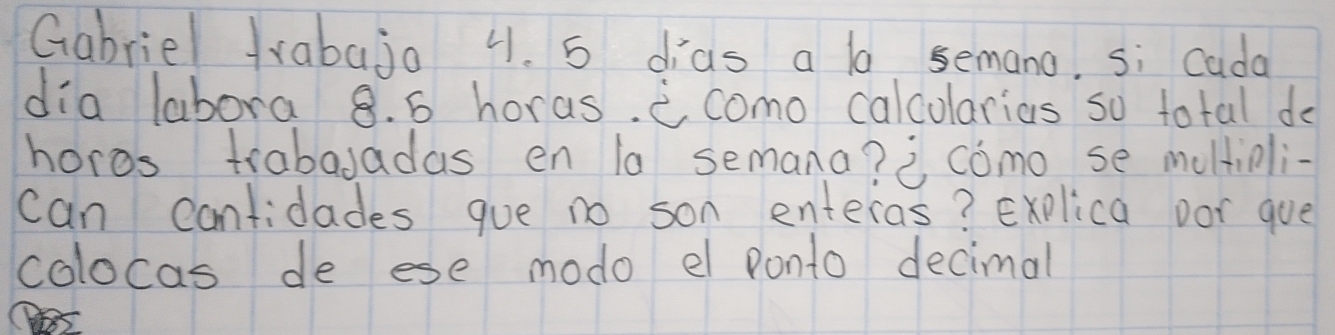 Gabriel trabaja 4.5 días a la semana. si cada
día labora 8.5 horas. ¿ como calcularias su total de
horas trabajadas en la semana? ¿ cómo se multipli-
can cantidades que no son enteras? Explica por que
colocas de ese modo el ponto decimal